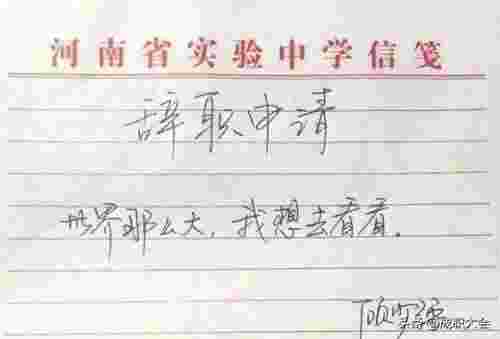 河南省实验中学信笺
辞职申请
世界那么大，我想去看看。
顾少强
头条@成职大会